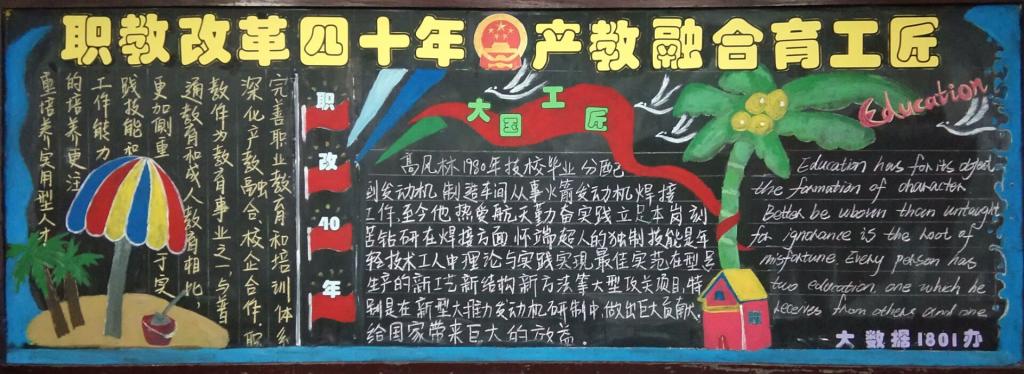 职教改革四十年 产教融合育工匠
完善职业教育和培训体系
深化产教融合、校企合作,职
教作为教育事业之一与普
通教育和成人教育相比
更加侧重于实
践技能和
工作能力
的培养更注
重培养实用型人才
职
改
40
年
大国工匠
高凤林1980年技校毕业分配
到发动机制造车间从事火箭发动机焊接
工作,至今他热爱航天勤奋实践立足本岗刻
苦钻研在焊接方面怀端超人的独制技能是年
轻技术工人中理论与实践实现最佳实范在型号
生产的新工艺新结构新方法等大型攻关项目,特
别是在新型大推力发动机研制中做出巨大贡献,
给国家带来巨大的效益.
Education
Education has for its object
the formation of character
Better be unborn than untaught
for ignorance is the root of
misfortune Every person has
two education, one which he
receives from others and one
大数据1801办